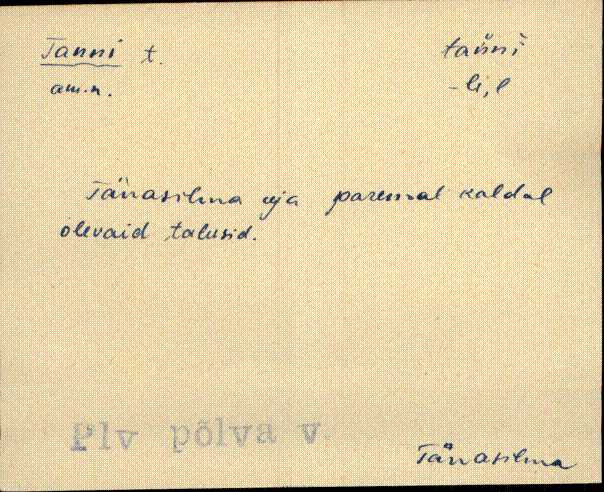 Tanni t. tańni
am.n. -le, l
Tänasilma oja paremal kaldal
olevaid talusid.
Plv põlva v.
Tänasilma